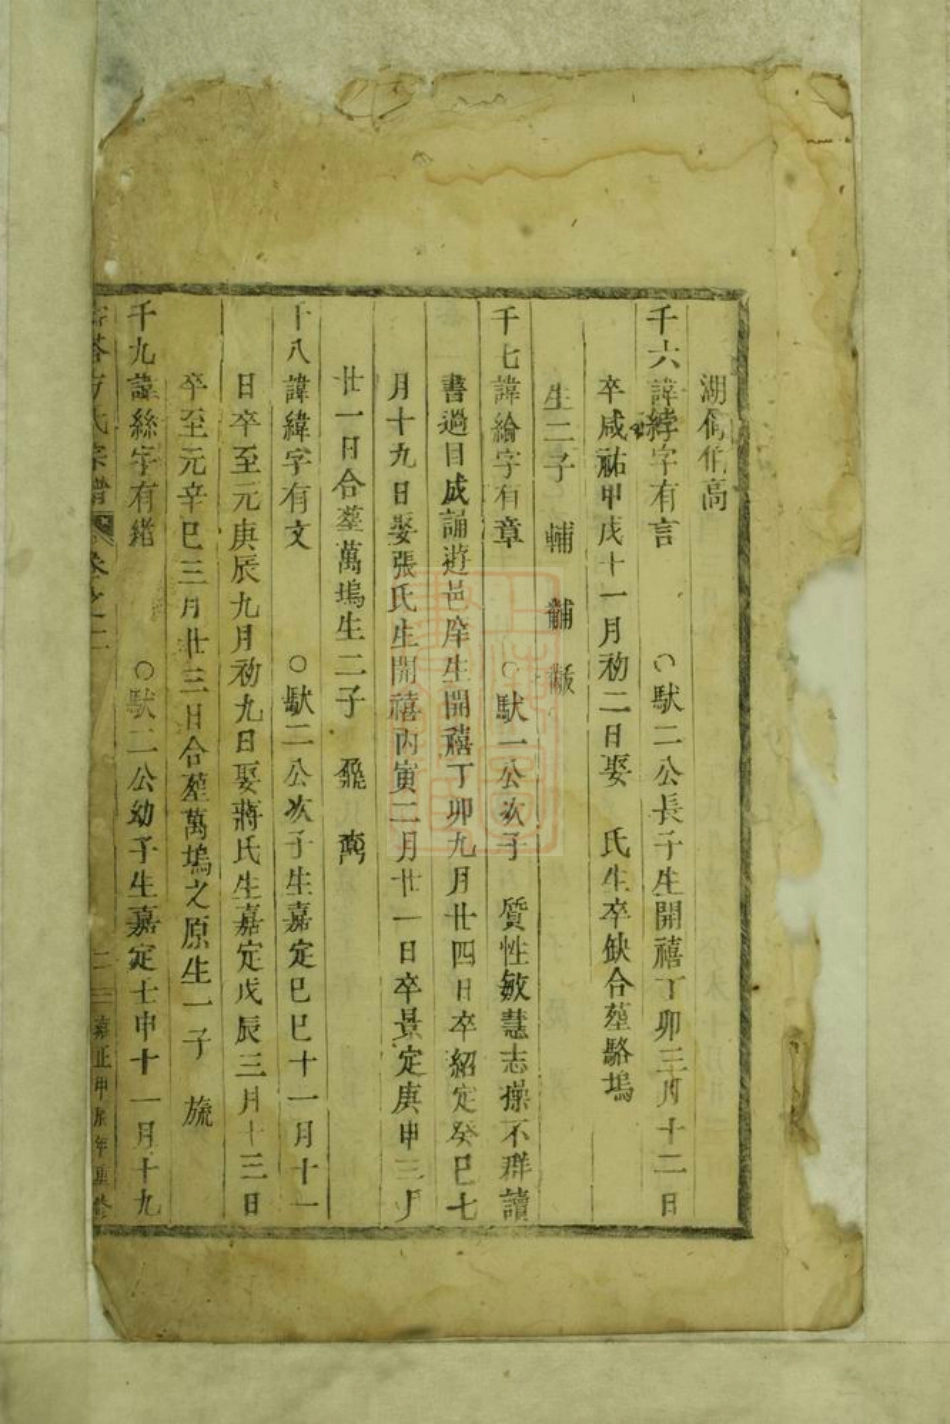 湖儁伯高
千六諱縡字有言　○馱二公長子生開禧丁卯三月十二日
卒咸祐甲戌十一月初二日娶　氏生卒缺合塟駱塢
生二子　輔　黼　黻
千七諱繪字有章　○馱一公次子　質性敏慧志操不群讀
書過目成誦遊邑庠生開禧丁卯九月廿四日卒紹定癸巳七
月十九日娶張氏生開禧丙寅二月廿一日卒景定庚申三月
廿一日合塟萬塢生二子　飛　鸞
十八諱緯字有文　○馱二公次子生嘉定己巳十一月十一
日卒至元庚辰九月初九日娶蔣氏生嘉定戊辰三月十三日
卒至元辛巳三月廿三日合塟萬塢之原生一子　旒
千九諱絲字有繼　○馱二公幼子生嘉定壬申十一月十九
方氏宗譜　卷之二　二　嘉正甲辰年重修